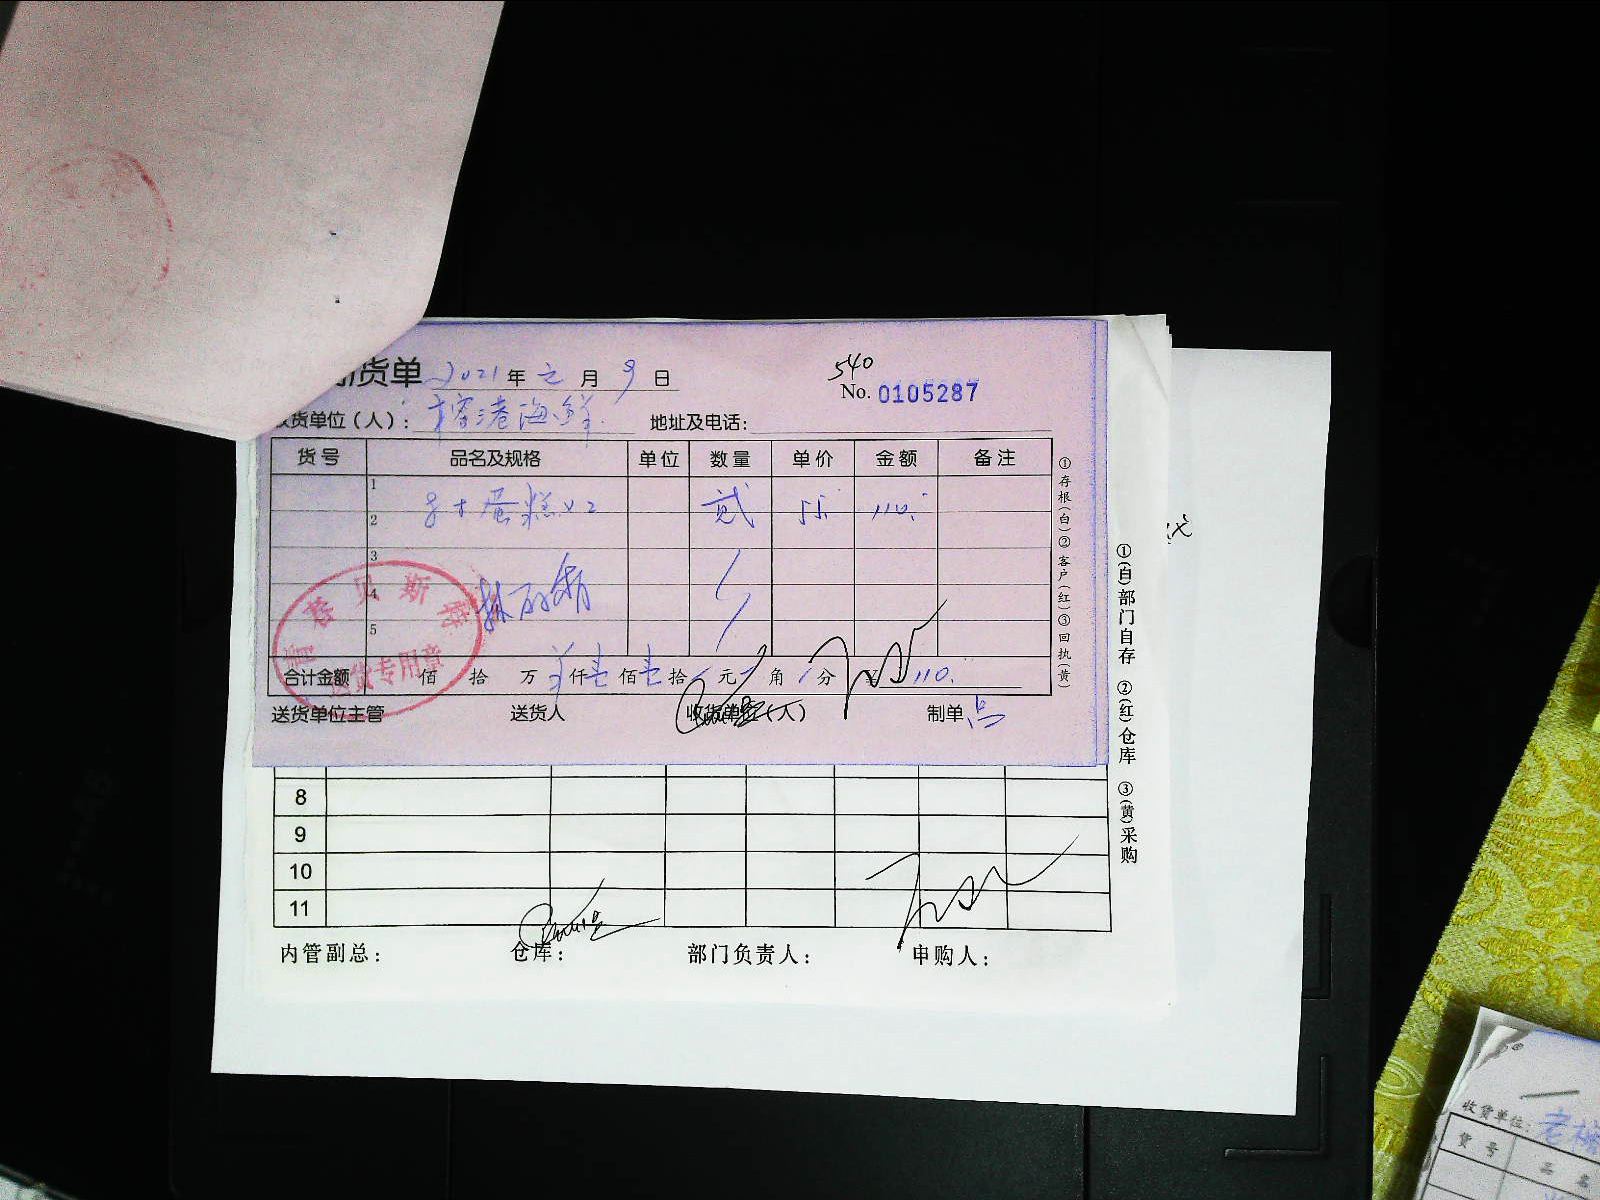 货单 2021年元月9日
540
No. 0105287
货单位(人): 榕港海鲜 地址及电话:
货号 品名及规格 单位 数量 单价 金额 备注
1
8寸蛋糕x2 贰 55. 110.
2
3
4
5
青 荟 贝 斯 特
送货专用章
合计金额 佰 拾 万 仟壹佰壹拾 元 角 分 ¥ 110.
送货单位主管 送货人 收货单位(人) 制单
①存根(白)②客户(红)③回执(黄)
8
9
10
11
内管副总: 仓库: 部门负责人: 申购人:
①(白)部门自存 ②(红)仓库 ③(黄)采购
收货单位:
货号 品名